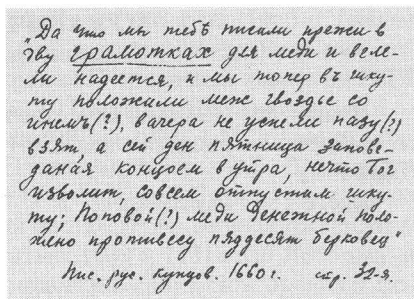 „Да что мы тебѣ писали прежи в
дву грамотках для меди и веле-
ли надеется, и мы топер въ шку-
ту положили меж гвоздье со
инемъ (?), вчера не успели пазу (?)
взят а сей ден пятница запове-
даная концоем в утра, нечто Бог
изволит, совсем отпустим шку-
ту; Поповой (?) меди денежной поло-
жено противесу пяддесят берковец“
Пис. рус. купцов. 1660 г. стр. 32-я.